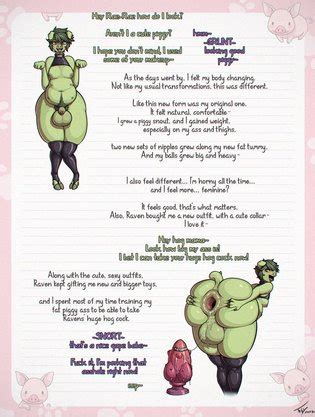 Hey Rae-Rae how do I look?
Aren't I a cute piggy?
I hope you don't mind, I used
some of your makeup~
hmm~
~GRUNT~
looking good
piggy~
As the days went by, I felt my body changing.
Not like my usual transformations, this was different.
Like this new form was my original one.
It felt natural, comfortable~
I grew a piggy snout, and I gained weight,
especially on my ass and thighs.
two new sets of nipples grew along my new fat tummy.
And my balls grew big and heavy~
I also feel different... I'm horny all the time...
and I feel more... feminine?
It feels good, that's what matters.
Also, Raven bought me a new outfit, with a cute collar~
I love it~
Hey hog mama~
Look how big my ass is!
I bet I can take your huge hog cock now!
Along with the cute, sexy outfits,
Raven kept gifting me new and bigger toys,
and I spent most of my time training my
fat piggy ass to be able to take
Ravens' huge hog cock.
~SNORT~
that's a nice gape babe~
Fuck it, I'm pushing that
asshole right now!